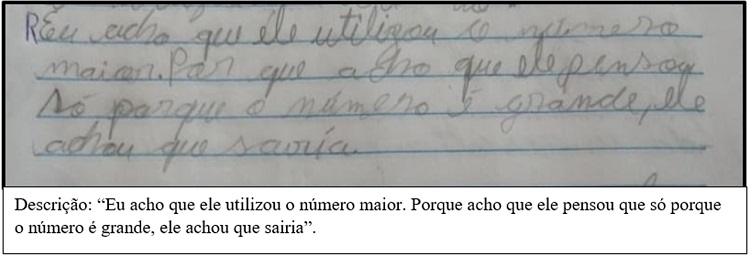 R Eu acho que ele utilizou o número
maior. Por que acho que ele pensou
só porque o número é grande, ele
achou que sairia.
Descrição: “Eu acho que ele utilizou o número maior. Porque acho que ele pensou que só porque
o número é grande, ele achou que sairia”.